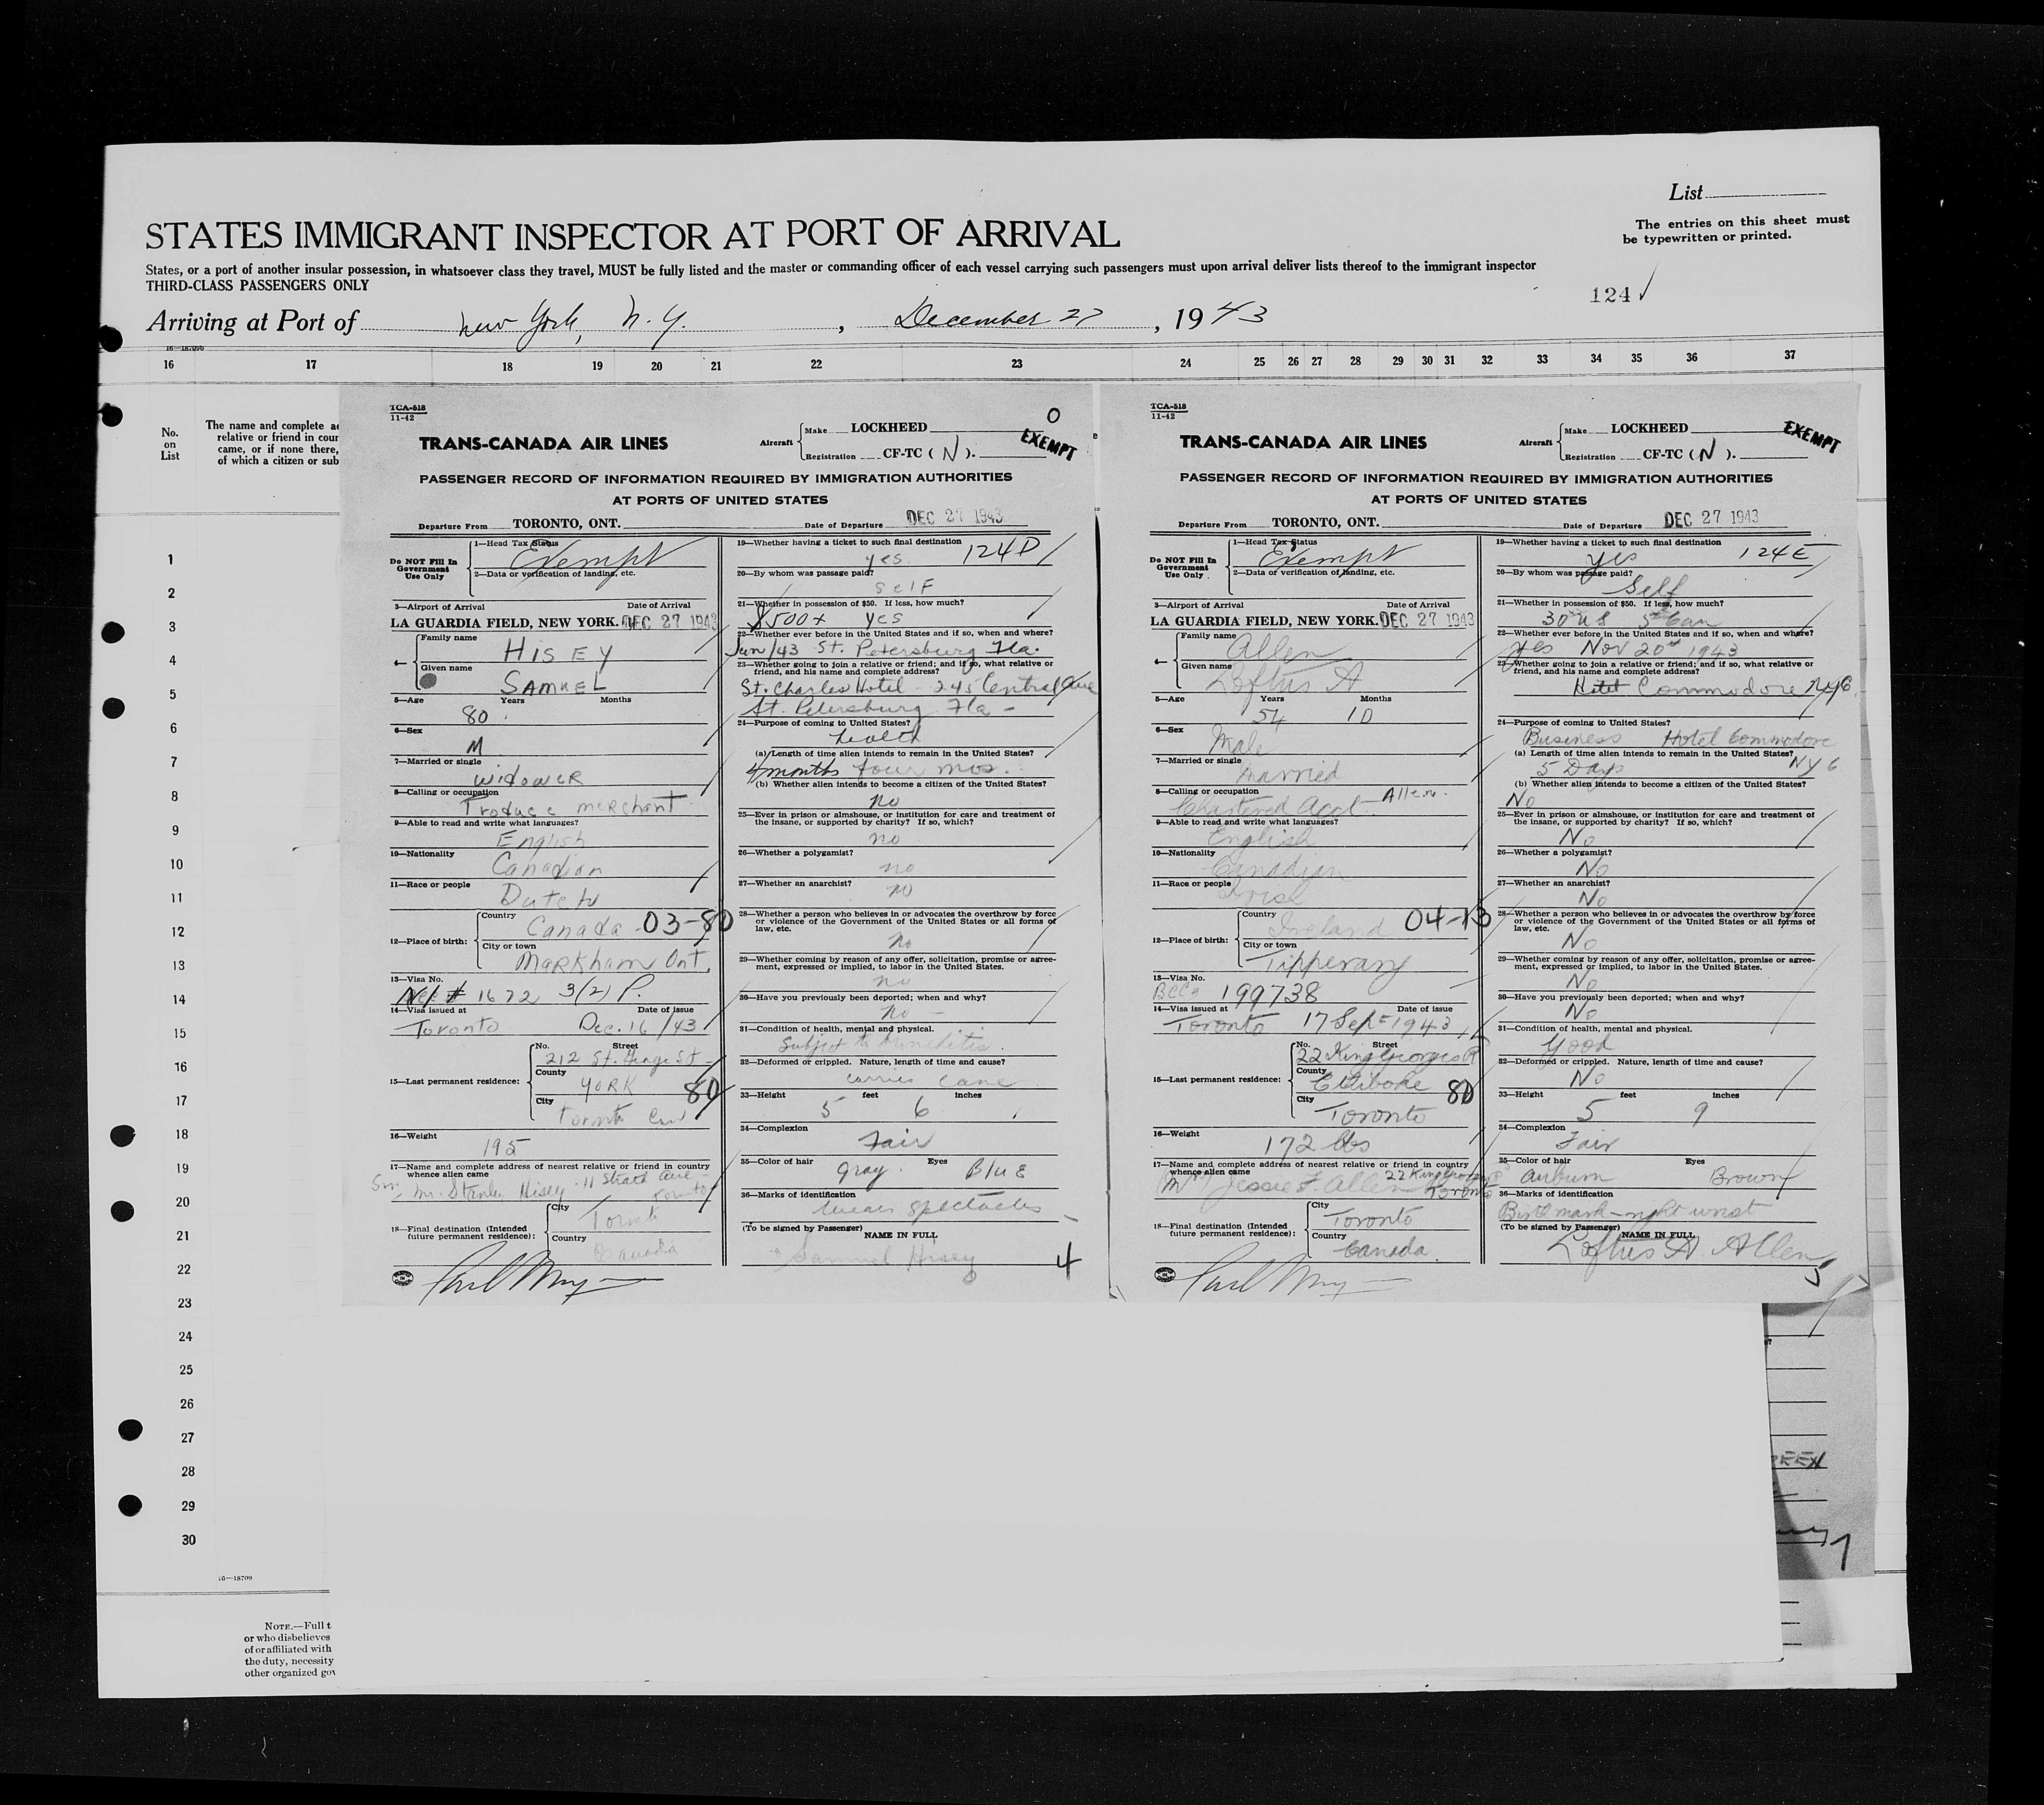 List
STATES IMMIGRANT INSPECTOR AT PORT OF ARRIVAL
The entries on this sheet must
be typewritten or printed.
States, or a port of another insular possession, in whatsoever class they travel, MUST be fully listed and the master or commanding officer of each vessel carrying such passengers must upon arrival deliver lists thereof to the immigrant inspector
THIRD-CLASS PASSENGERS ONLY
124
Arriving at Port of New York, N.Y., December 27, 1943
16 17 18 19 20 21 22 23 24 25 26 27 28 29 30 31 32 33 34 35 36 37
No.
on
List
The name and complete
relative or friend in
came, or if none there,
of which a citizen or
1
2
3
4
5
6
7
8
9
10
11
12
13
14
15
16
17
18
19
20
21
22
23
24
25
26
27
28
29
30
16—18709
NOTE.—Full
or who disbelieves
of or affiliated with
the duty, necessity
other organized
TCA-518
11-42
0
EXEMPT
TRANS-CANADA AIR LINES
Aircraft Make LOCKHEED
Registration CF-TC (N).
PASSENGER RECORD OF INFORMATION REQUIRED BY IMMIGRATION AUTHORITIES
AT PORTS OF UNITED STATES
Departure From TORONTO, ONT. Date of Departure DEC 27 1943
Do NOT Fill In
Government
Use Only
1—Head Tax Status
Exempt
2—Data or verification of landing, etc.
3—Airport of Arrival Date of Arrival
LA GUARDIA FIELD, NEW YORK. DEC 27 1943
4— Family name
HISEY
Given name
SAMUEL
5—Age Years Months
80
6—Sex
M
7—Married or single
WIDOWER
8—Calling or occupation
Produce merchant
9—Able to read and write what languages?
English
10—Nationality
Canadian
11—Race or people
Dutch
12—Place of birth:
Country
Canada 03-80
City or town
Markham Ont.
13—Visa No.
# 1672 3(2) P.
14—Visa issued at Date of issue
Toronto Dec. 16/43
15—Last permanent residence:
No. Street
212 St. George St
County
YORK 80
City
Toronto
16—Weight
195
17—Name and complete address of nearest relative or friend in country
whence alien came
Son Mr. Stanley Hisey - 11 Strath Ave
Toronto
18—Final destination (Intended
future permanent residence):
City
Toronto
Country
Canada
19—Whether having a ticket to such final destination
yes 124D
20—By whom was passage paid?
self
21—Whether in possession of $50. If less, how much?
$500+ yes
22—Whether ever before in the United States and if so, when and where?
Jan/43 St. Petersburg Fla.
23—Whether going to join a relative or friend; and if so, what relative or
friend, and his name and complete address?
St. Charles Hotel - 245 Central Ave
St. Petersburg Fla -
24—Purpose of coming to United States?
health
(a) Length of time alien intends to remain in the United States?
4 months four mos.
(b) Whether alien intends to become a citizen of the United States?
no
25—Ever in prison or almshouse, or institution for care and treatment of
the insane, or supported by charity? If so, which?
no
26—Whether a polygamist?
no
27—Whether an anarchist?
no
28—Whether a person who believes in or advocates the overthrow by force
or violence of the Government of the United States or all forms of
law, etc.
no
29—Whether coming by reason of any offer, solicitation, promise or agree-
ment, expressed or implied, to labor in the United States.
no
30—Have you previously been deported; when and why?
no -
31—Condition of health, mental and physical.
Subject to Bronchitis.
32—Deformed or crippled. Nature, length of time and cause?
carries cane
33—Height feet inches
5 6
34—Complexion
Fair
35—Color of hair Eyes
gray. BLUE
36—Marks of identification
wears spectacles
(To be signed by Passenger)
NAME IN FULL
Samuel Hisey
4
TCA-518
11-42
EXEMPT
TRANS-CANADA AIR LINES
Aircraft Make LOCKHEED
Registration CF-TC (N).
PASSENGER RECORD OF INFORMATION REQUIRED BY IMMIGRATION AUTHORITIES
AT PORTS OF UNITED STATES
Departure From TORONTO, ONT. Date of Departure DEC 27 1943
Do NOT Fill In
Government
Use Only
1—Head Tax Status
Exempt
2—Data or verification of landing, etc.
3—Airport of Arrival Date of Arrival
LA GUARDIA FIELD, NEW YORK. DEC 27 1943
4— Family name
Allen
Given name
Loftus A
5—Age Years Months
54 10
6—Sex
Male
7—Married or single
Married
8—Calling or occupation
Chartered Acct - Allen.
9—Able to read and write what languages?
English
10—Nationality
Canadian
11—Race or people
Irish
12—Place of birth:
Country
Ireland 04-13
City or town
Tipperary
13—Visa No.
BCC# 199738
14—Visa issued at Date of issue
Toronto 17 Sept 1943
15—Last permanent residence:
No. Street
22 King Georges R
County
Etobicoke 80
City
Toronto
16—Weight
172 lbs
17—Name and complete address of nearest relative or friend in country
whence alien came
Mrs Jessie F. Allen 22 King Georges R
Toronto
18—Final destination (Intended
future permanent residence):
City
Toronto
Country
Canada.
19—Whether having a ticket to such final destination
yes 124E
20—By whom was passage paid?
Self
21—Whether in possession of $50. If less, how much?
30 US 5 Can
22—Whether ever before in the United States and if so, when and where?
Yes Nov 20th 1943
23—Whether going to join a relative or friend; and if so, what relative or
friend, and his name and complete address?
Hotel Commodore NYC
24—Purpose of coming to United States?
Business Hotel Commodore
(a) Length of time alien intends to remain in the United States?
5 Days NYC
(b) Whether alien intends to become a citizen of the United States?
No
25—Ever in prison or almshouse, or institution for care and treatment of
the insane, or supported by charity? If so, which?
No
26—Whether a polygamist?
No
27—Whether an anarchist?
No
28—Whether a person who believes in or advocates the overthrow by force
or violence of the Government of the United States or all forms of
law, etc.
No
29—Whether coming by reason of any offer, solicitation, promise or agree-
ment, expressed or implied, to labor in the United States.
No
30—Have you previously been deported; when and why?
No
31—Condition of health, mental and physical.
Good
32—Deformed or crippled. Nature, length of time and cause?
No
33—Height feet inches
5 9
34—Complexion
Fair
35—Color of hair Eyes
auburn Brown
36—Marks of identification
Birthmark - right wrist
(To be signed by Passenger)
NAME IN FULL
Loftus A Allen
5